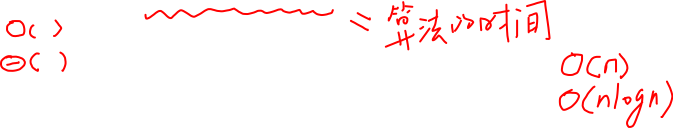 O( )
Θ( )
= 算法的时间
O(n)
O(nlogn)